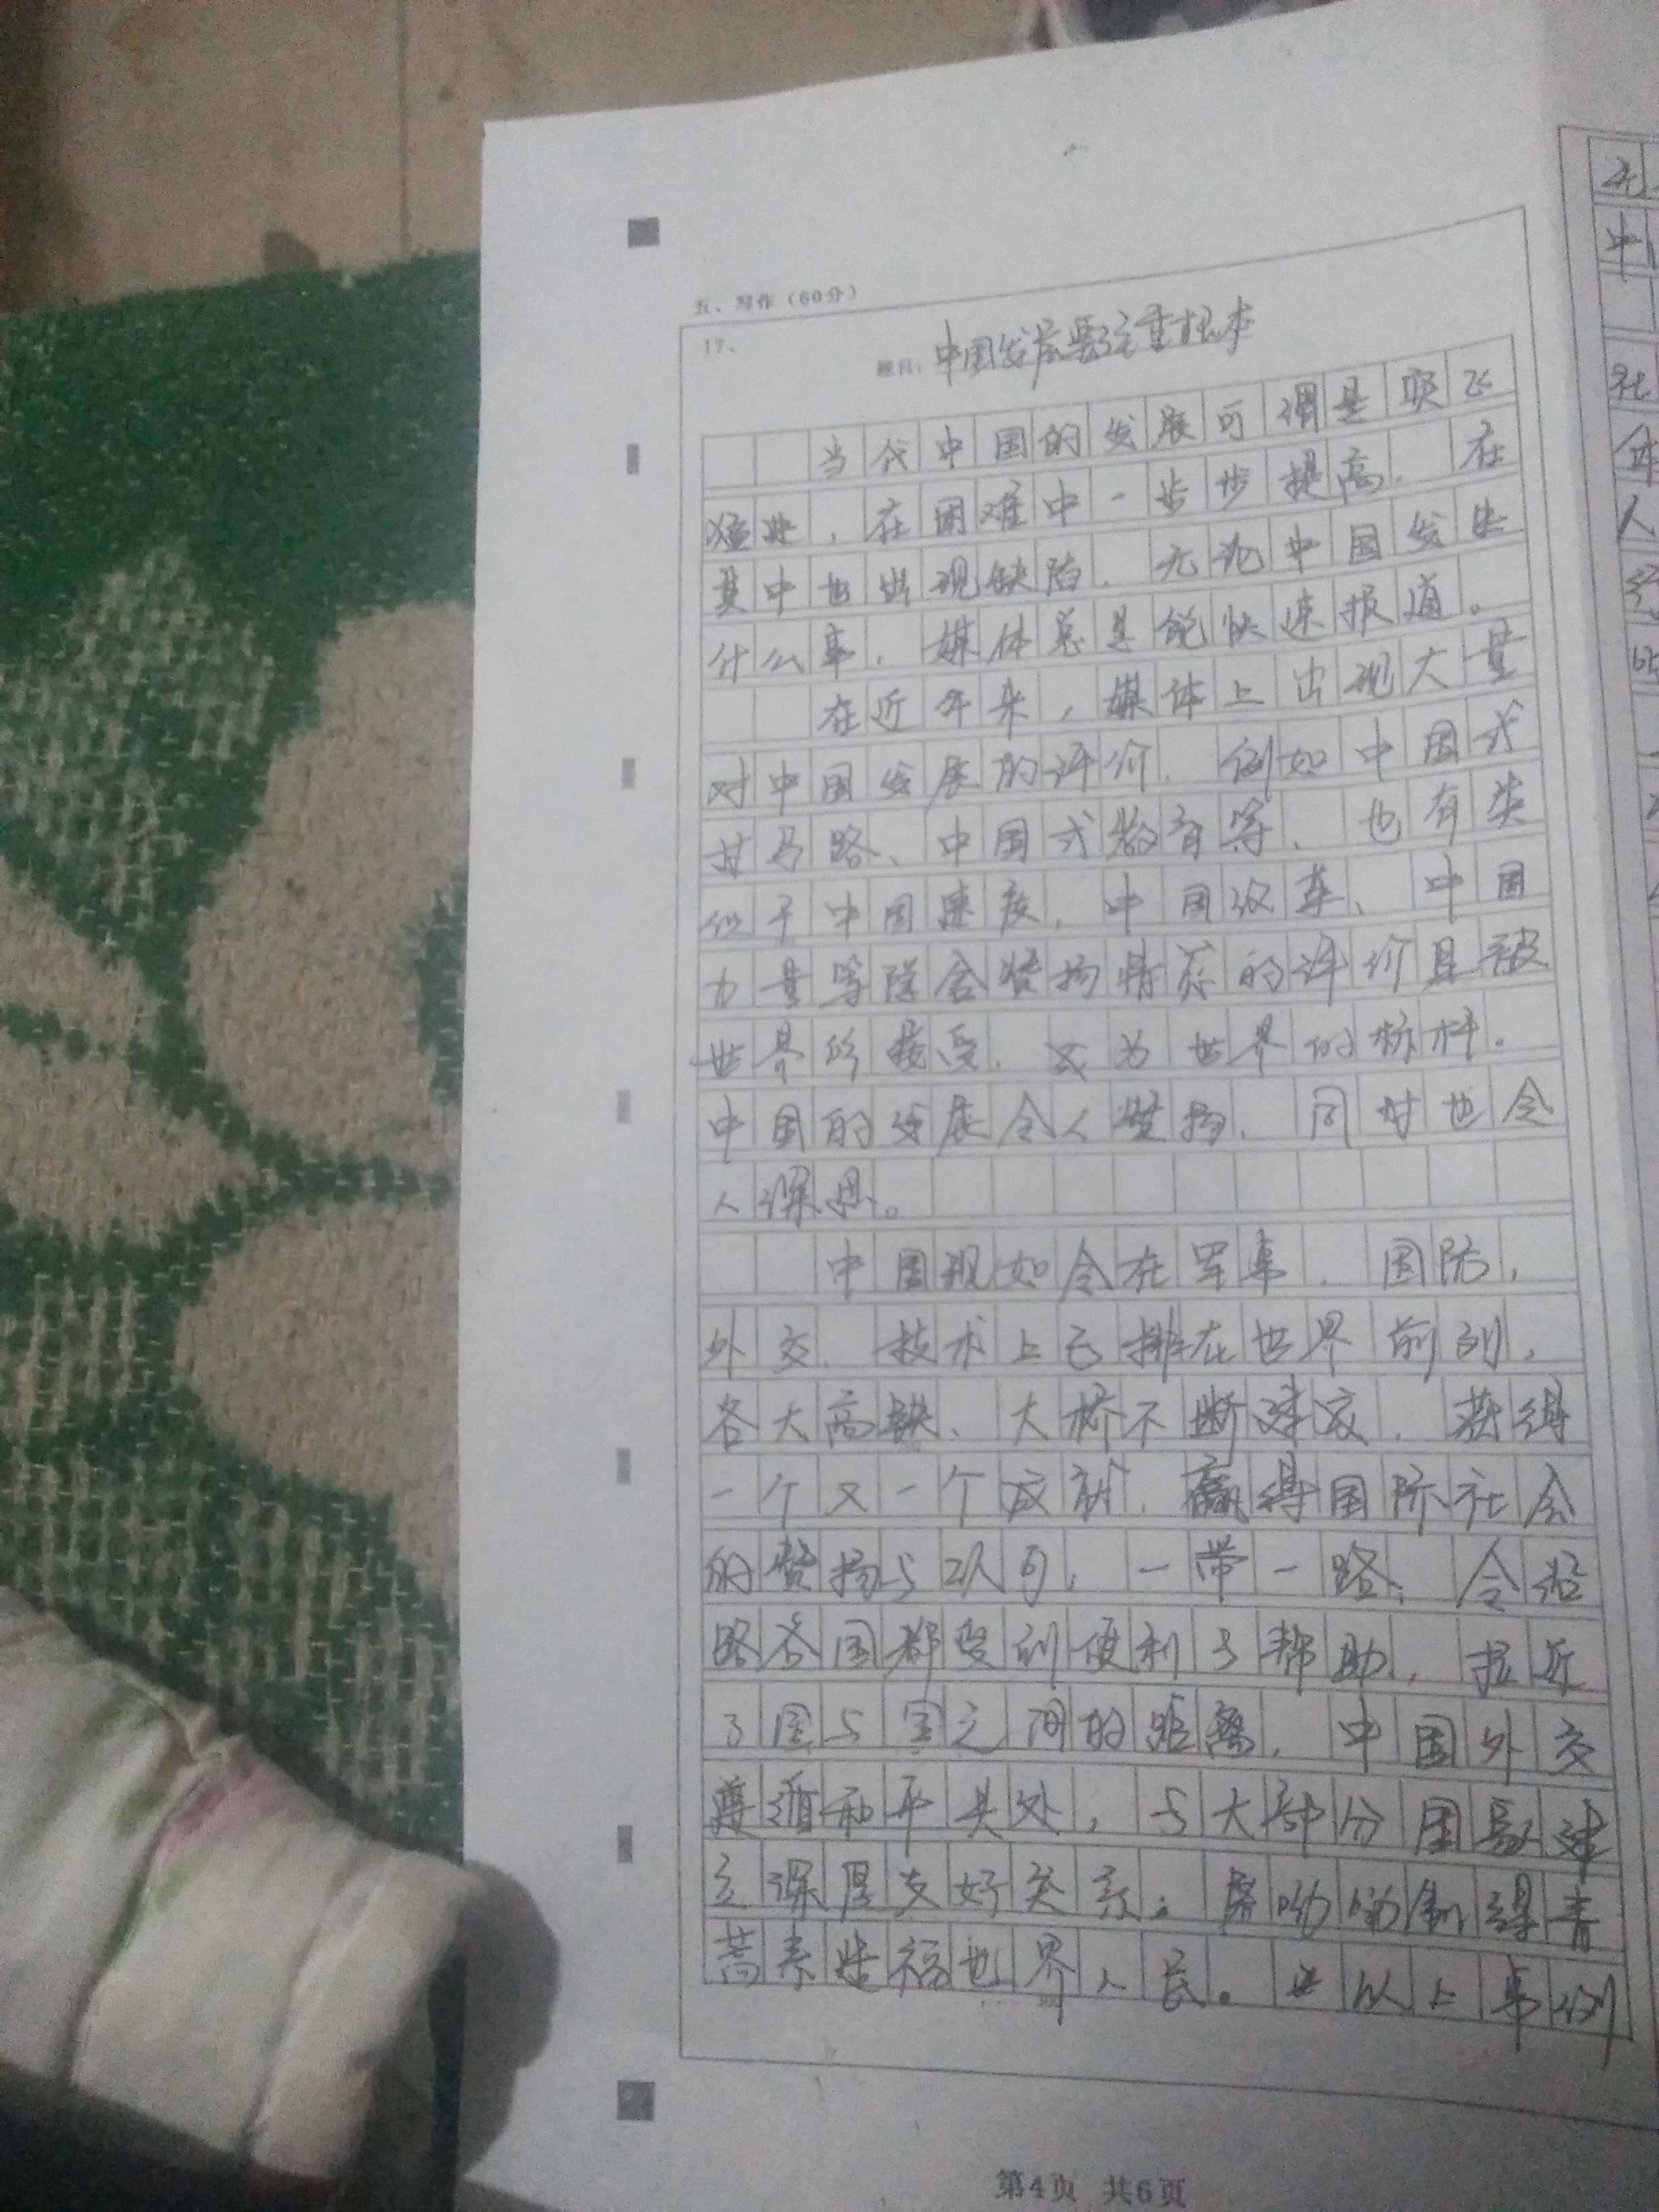 五、写作（60分）
17、
题目：中国发展要注重根本
当代中国的发展可谓是突飞
猛进，在困难中一步步提高，在
其中也出现缺陷，无论中国发生
什么事，媒体总是能快速报道。
在近年来，媒体上出现大量
对中国发展的评价，例如中国式
过马路、中国式教育等，也有类
似于中国速度，中国改革、中国
力量等隐含赞扬情感的评价且被
世界所接受，成为世界的标杆。
中国的发展令人赞扬，同时也令
人深思。
中国现如今在军事、国防，
外交、技术上已排在世界前列，
各大高铁、大桥不断建成，获得
一个又一个成就，赢得国际社会
的赞扬与认可，一带一路，令沿
路各国都受到便利与帮助，拉近
了国与国之间的距离，中国外交
遵循和平共处，与大部分国家建
立深厚友好关系。屠呦呦制得青
蒿素造福世界人民。 以上事例
无
中
社
体
人
第4页 共6页